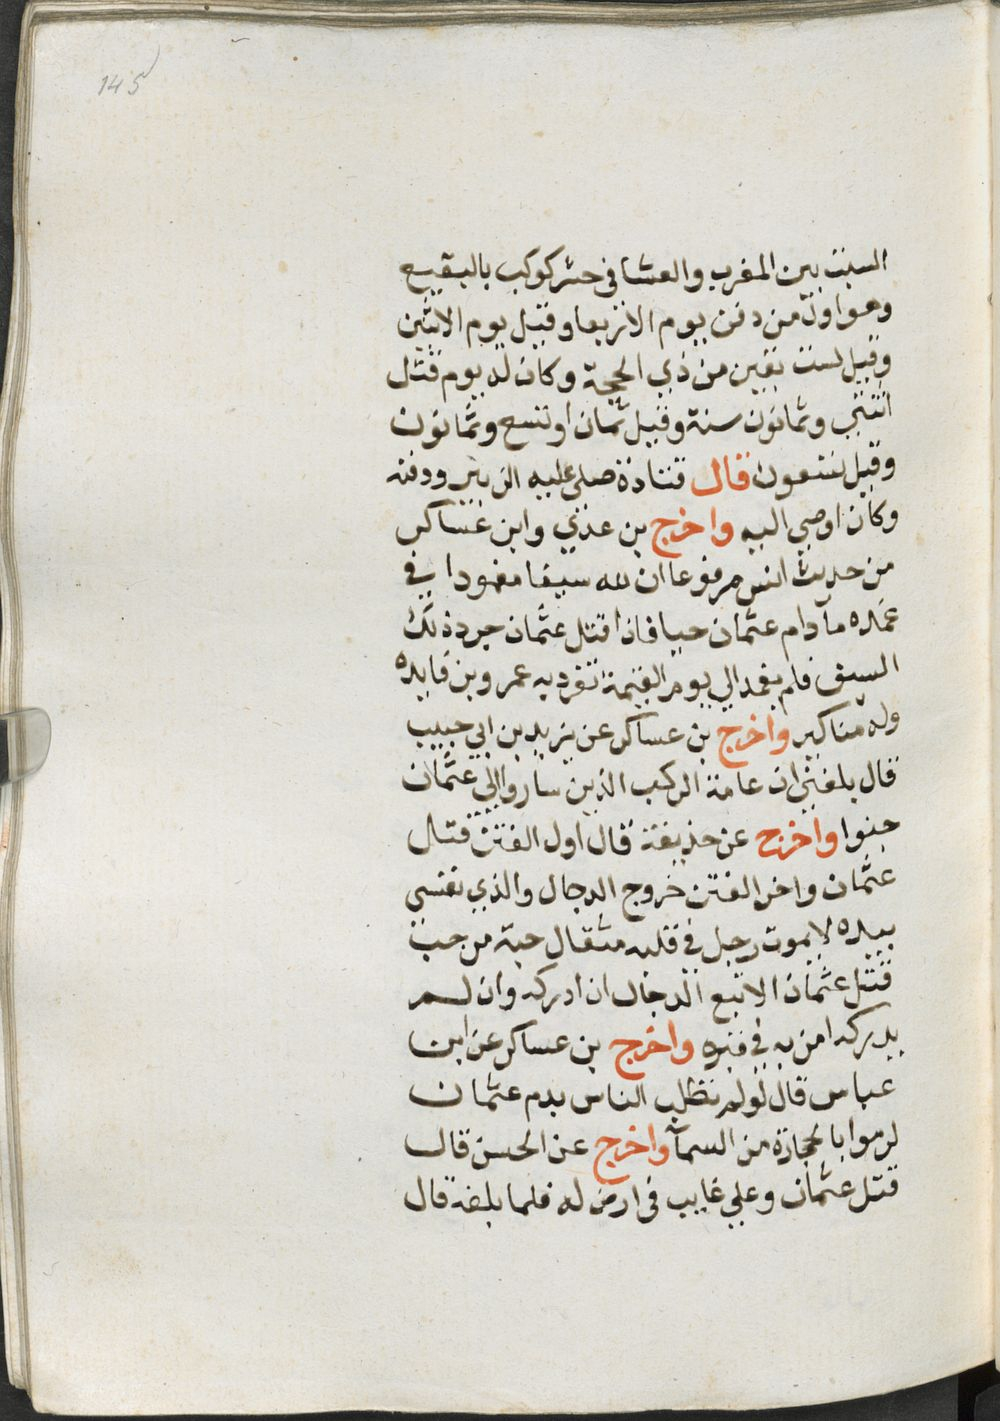 145
السبت بين المغرب والعشا في حش كوكب بالبقيع
وهو اول من دفن يوم الاربعا وقتيل يوم الاثنين
وقيل لست بقين من ذي الحجة وكان له يوم قتل
اثنتي وثمانون سنة وقيل ثمان او تسع وثمانون
وقيل تسعون قال قتادة صلى عليه الزبير ودفنه
وكان اوصي اليه واخرج بن عدي وابن عساكر
من حديث انس مرفوعا ان لله سيفا مغمودا في
غمده مآدام عثمان حيا فاذا قتل عثمان جرد ذلك
السيف فلم يغمد الي يوم القيمة تفرد به عمرو بن فايده
وله مناكير واخرج بن عساكر عن يزيد بن ابي حبيب
قال بلغني ان عامة الركب الذين ساروا الي عثمان
جنوا واخرج عن حذيفة قال اول الفتن قتل
عثمان واخر الفتن خروج الدجال والذي نفسي
بيده لا يموت رجل في قلبه مثقال حبة من حب
قتل عثمان الا تبع الدجال ان ادركه وان لم
يدركه امن به في قبره واخرج بن عساكر عن ابن
عباس قال لو لم يطلب الناس بدم عثمان
لرموا بالحجارة من السمآ واخرج عن الحسن قال
قتل عثمان وعلي غايب في ارض له فلما بلغه قال